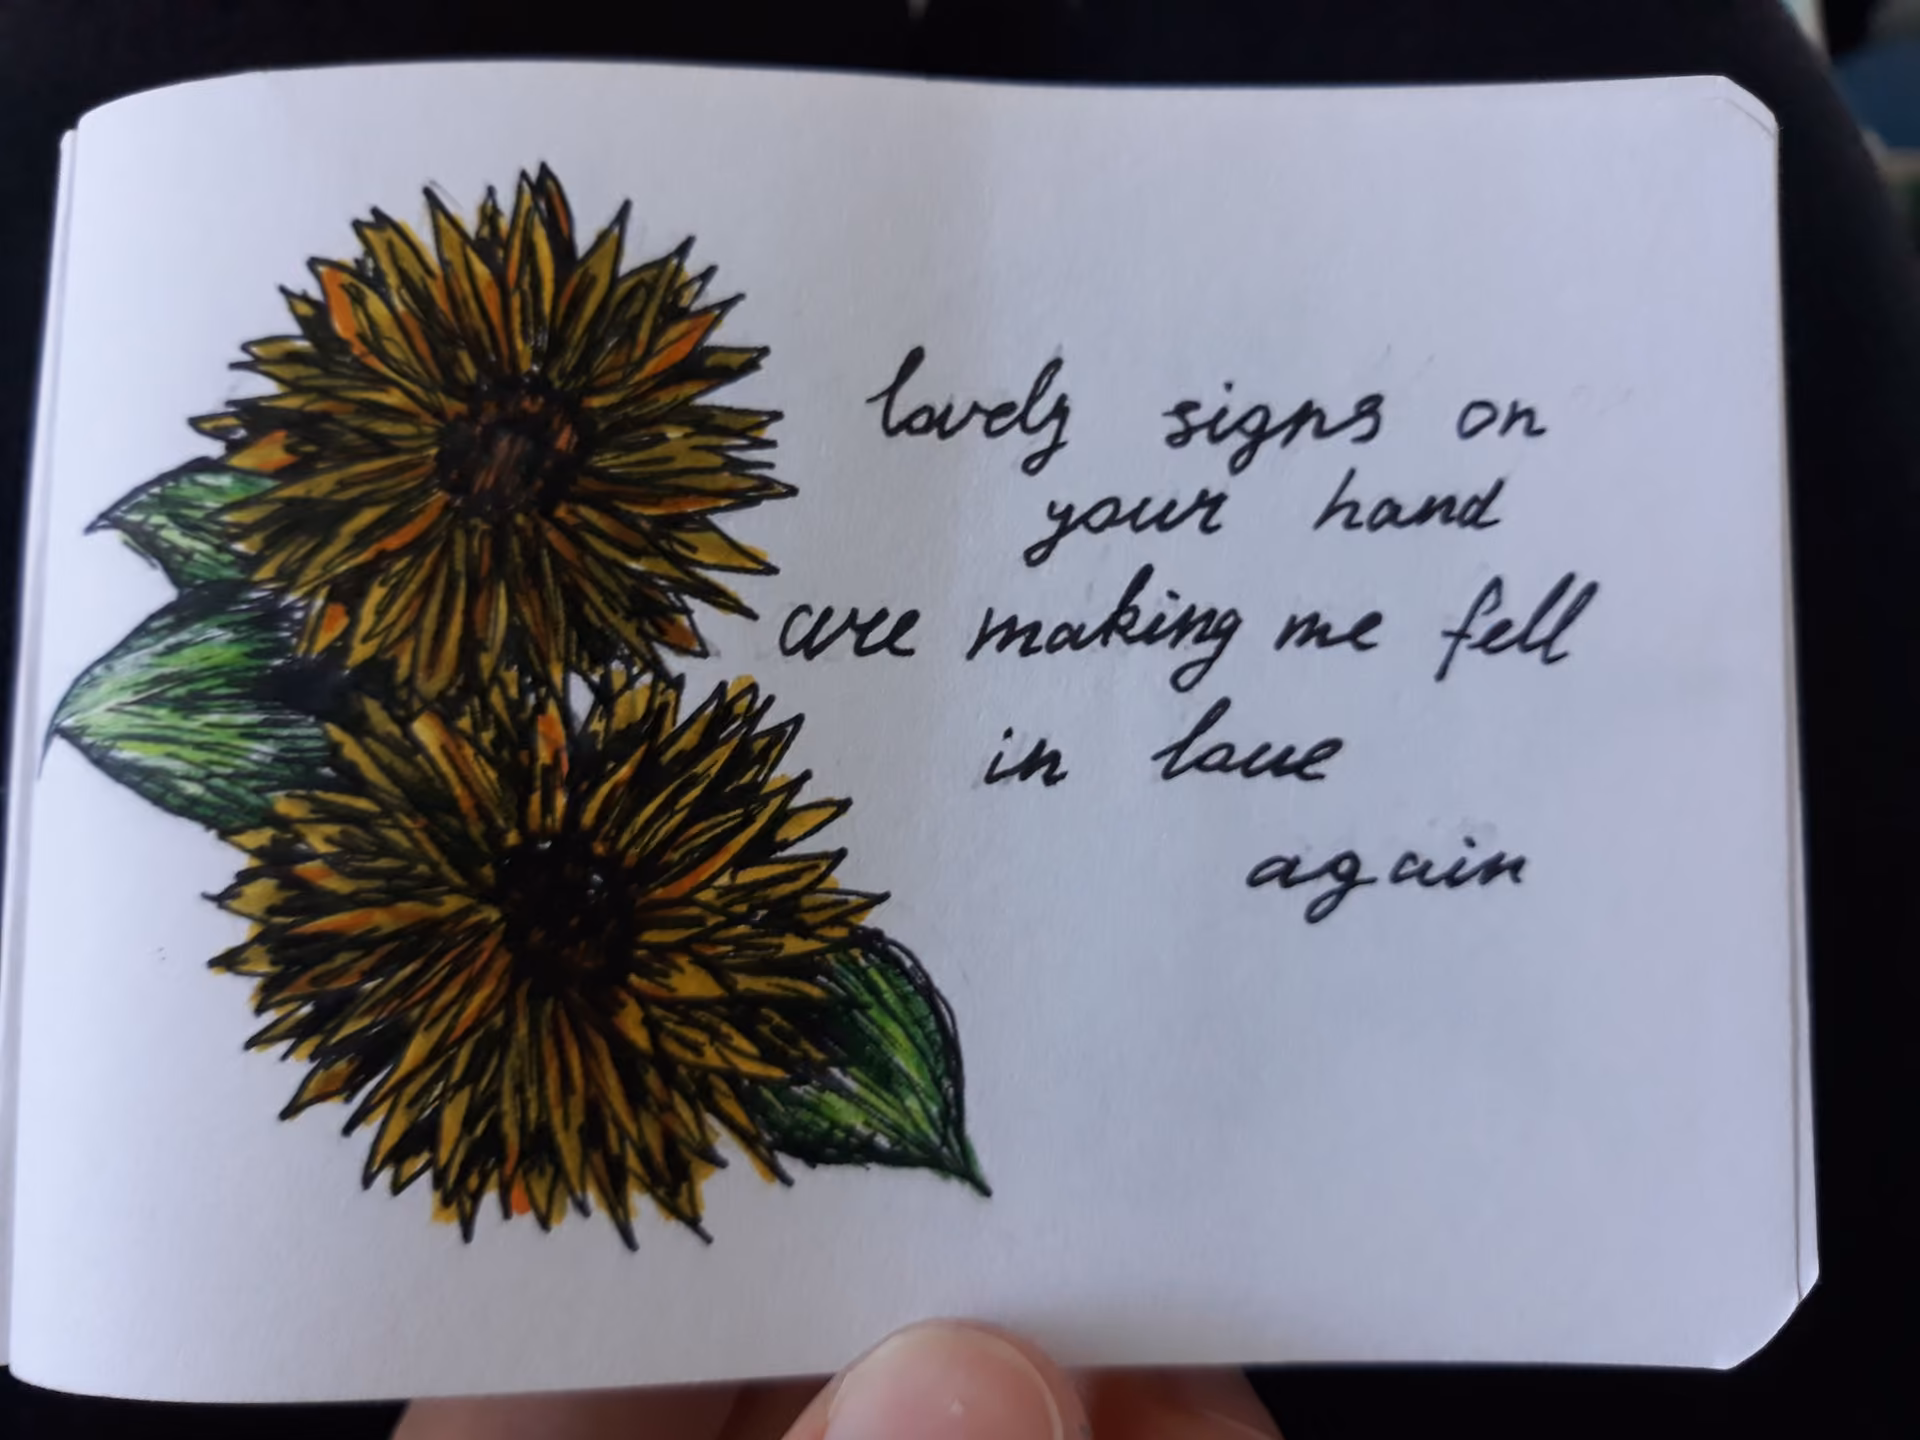 lovely signs on
your hand
are making me fell
in love
again